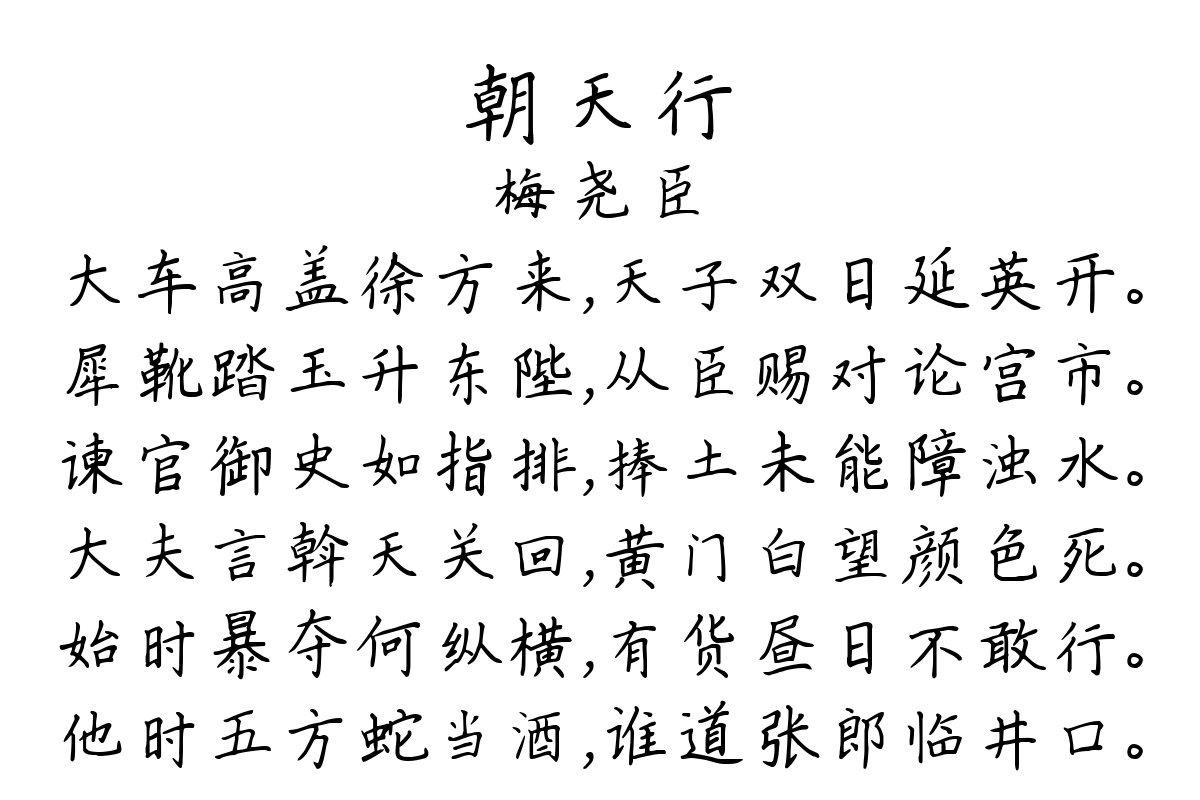 朝天行
梅尧臣
大车高盖徐方来,天子双日延英开。
犀靴踏玉升东陛,从臣赐对论宫市。
谏官御史如指排,捧土未能障浊水。
大夫言斡天关回,黄门白望颜色死。
始时暴夺何纵横,有货昼日不敢行。
他时五方蛇当酒,谁道张郎临井口。